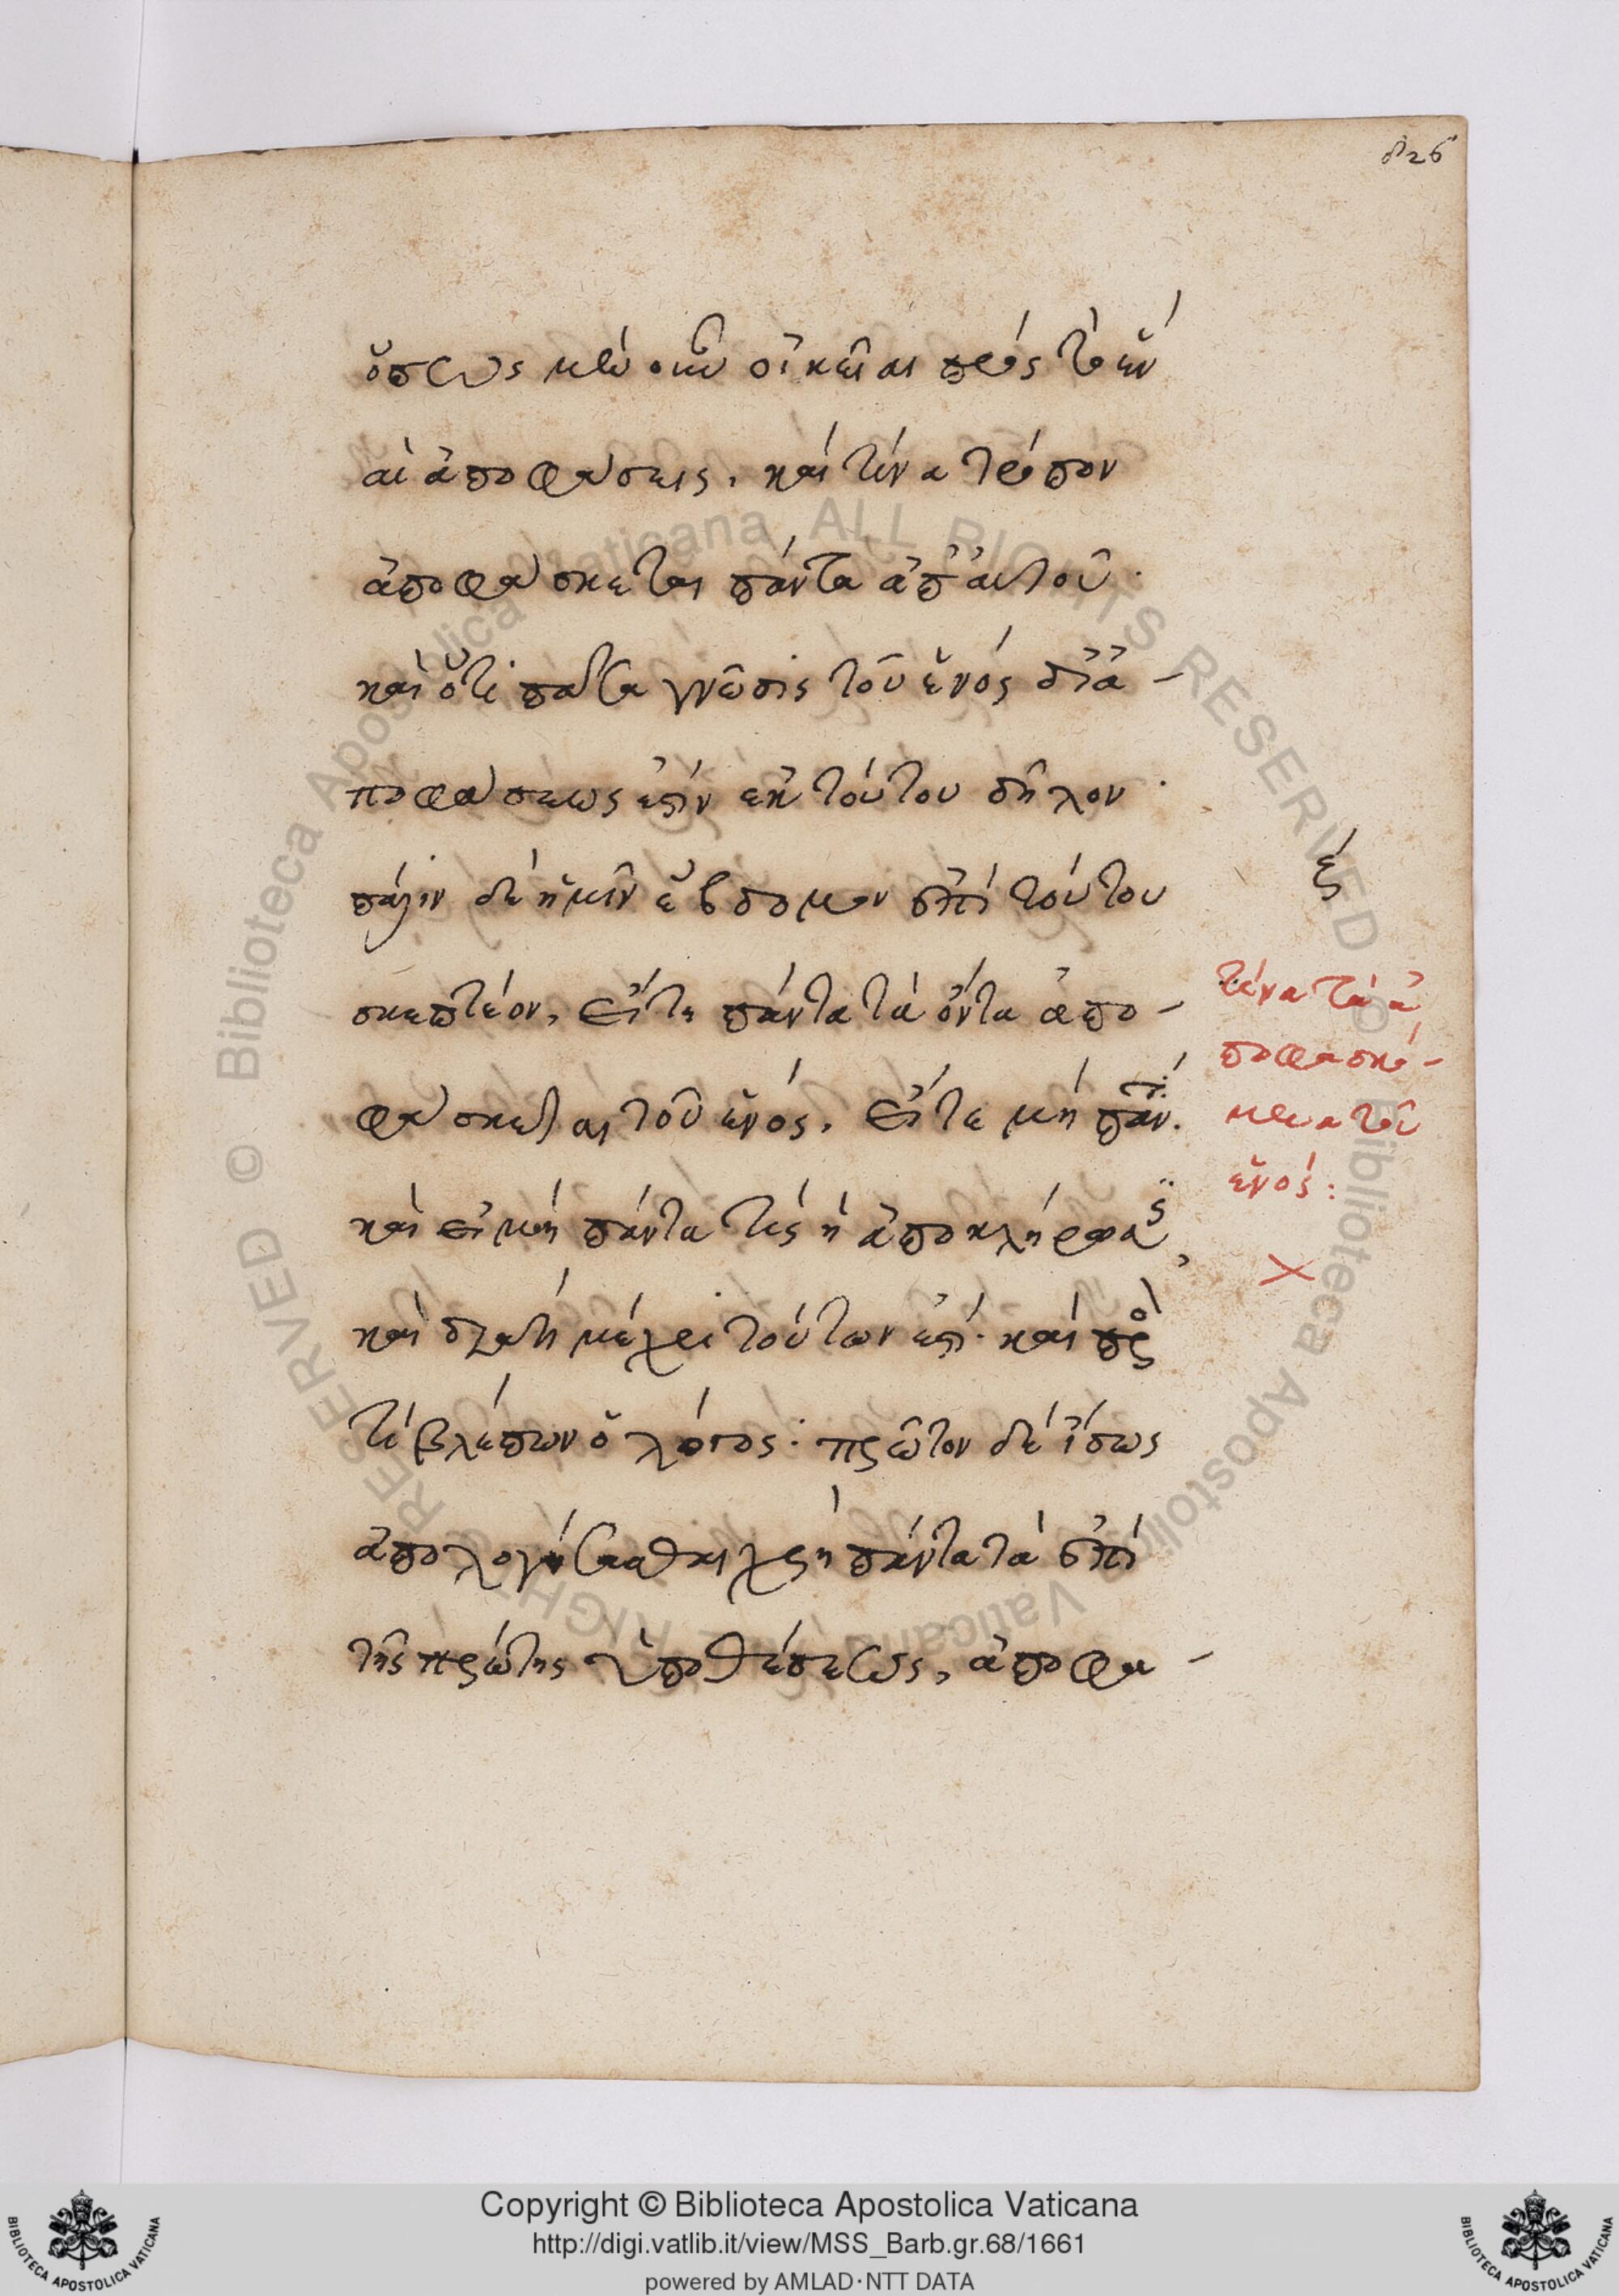 826
ὅπως μὲν οὖν οἰκεῖαι πρὸς τὸ ἓν
αἱ ἀποφάσεις, καὶ τίνα τρόπον
ἀποφάσκεται πάντα ἀπ' αὐτοῦ·
καὶ ὅτι πᾶσα γνῶσις τοῦ ἑνὸς δι' ἀ-
ποφάσεως ἐστὶν ἐκ τούτου δῆλον·
πάλιν δὲ ἡμῖν ἕβδομον ἐπὶ τούτου
σκεπτέον, εἴτε πάντα τὰ ὄντα ἀπο-
φάσκεται τοῦ ἑνός, εἴτε μὴ πάντ.
καὶ εἰ μὴ πάντα τίς ἡ ἀποκλήρωσ,
καὶ διατί μέχρι τούτων ἐστί· καὶ πρὸς
τί βλέπων ὁ λόγος· πρῶτον δὲ ἴσως
ἀπολογίσασθαι χρὴ πάντα τὰ ἐπὶ
τῆς πρώτης ὑποθέσεως, ἀποφα-
τίνα τὰ ἀ
ποφασκό-
μενα τοῦ
ἑνός:
Copyright © Biblioteca Apostolica Vaticana
http://digi.vatlib.it/view/MSS_Barb.gr.68/1661
powered by AMLAD·NTT DATA
BIBLIOTECA APOSTOLICA VATICANA
BIBLIOTECA APOSTOLICA VATICANA
© Biblioteca Apostolica Vaticana ALL RIGHTS RESERVED
© Biblioteca Apostolica Vaticana ALL RIGHTS RESERVED